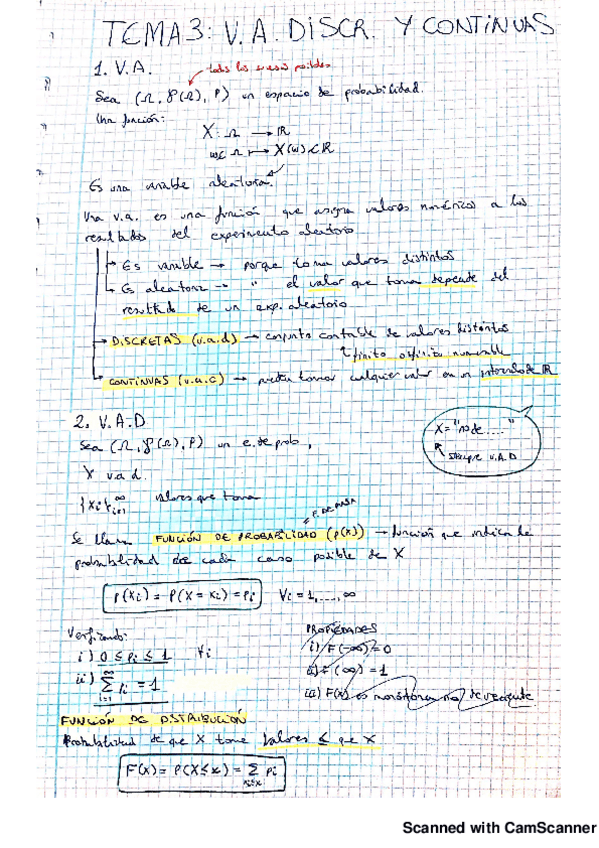 TEMA 3: V.A. DISCR. Y CONTINUAS
1. V.A.
todos los sucesos posibles
Sea (Ω, P(Ω), P) un espacio de probabilidad.
Una función:
X: Ω → ℝ
ω∈Ω ↦ X(ω)∈ℝ
Es una variable aleatoria.
Una v.a. es una función que asigna valores numéricos a los
resultados del experimento aleatorio
↳ Es variable → porque toma valores distintos
↳ Es aleatoria → " el valor que toma depende del
resultado de un exp. aleatorio
→ DISCRETAS (v.a.d) → conjunto contable de valores distintos
finito o infinito numerable
→ CONTINUAS (v.a.c) → puede tomar cualquier valor en un intervalo de ℝ
2. V.A.D
Sea (Ω, P(Ω), P) un e. de prob.,
X v.a.d.
{xi}∞i=1 valores que toma
X = "nº de ....."
siempre v.A.D
= F. DE MASA
Se llama FUNCIÓN DE PROBABILIDAD (p(x)) → función que indica la
probabilidad de cada caso posible de X
p(xi) = P(X = xi) = pi ∀i = 1, ...., ∞
Verificando:
i) 0 ≤ pi ≤ 1 ∀i
ii) ∞Σi=1 pi = 1
PROPIEDADES
i) F(-∞) = 0
ii) F(∞) = 1
iii) F(x) es monótona no decreciente
FUNCIÓN DE DISTRIBUCIÓN
Probabilidad de que X tome valores ≤ que x
F(x) = P(X ≤ x) = Σ pi
xi≤x
Scanned with CamScanner